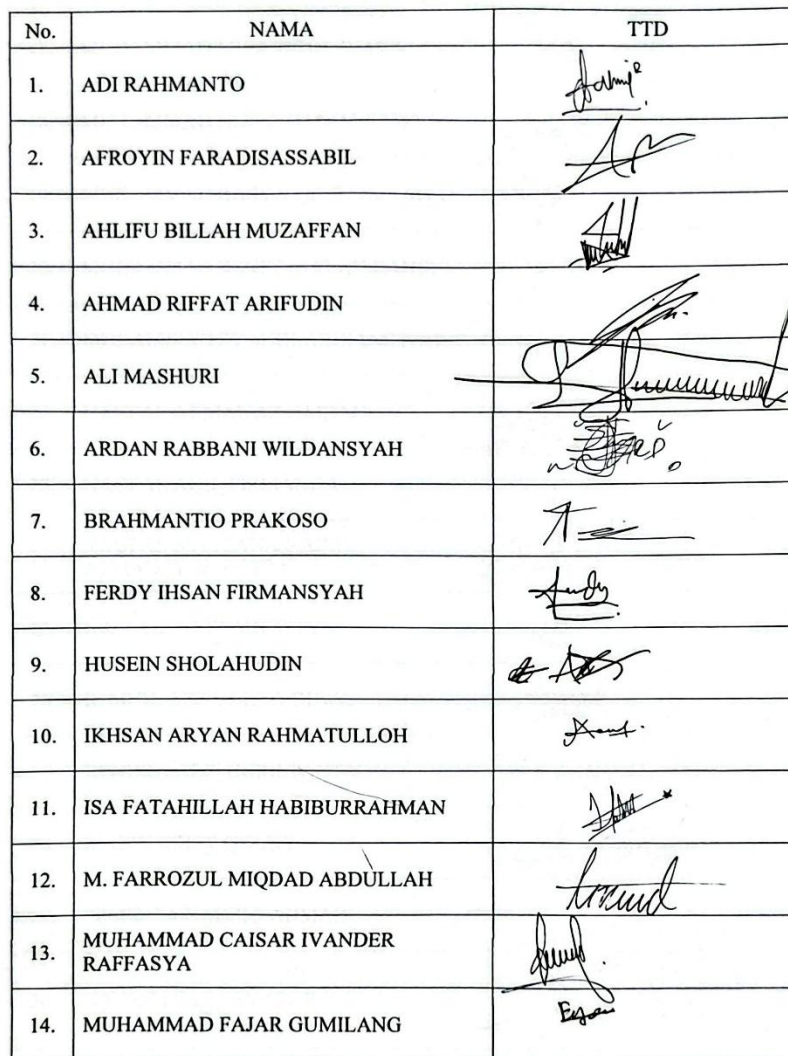 No. NAMA TTD
1. ADI RAHMANTO
2. AFROYIN FARADISASSABIL
3. AHLIFU BILLAH MUZAFFAN
4. AHMAD RIFFAT ARIFUDIN
5. ALI MASHURI
6. ARDAN RABBANI WILDANSYAH
7. BRAHMANTIO PRAKOSO
8. FERDY IHSAN FIRMANSYAH
9. HUSEIN SHOLAHUDIN
10. IKHSAN ARYAN RAHMATULLOH
11. ISA FATAHILLAH HABIBURRAHMAN
12. M. FARROZUL MIQDAD ABDULLAH
13. MUHAMMAD CAISAR IVANDER
RAFFASYA
14. MUHAMMAD FAJAR GUMILANG